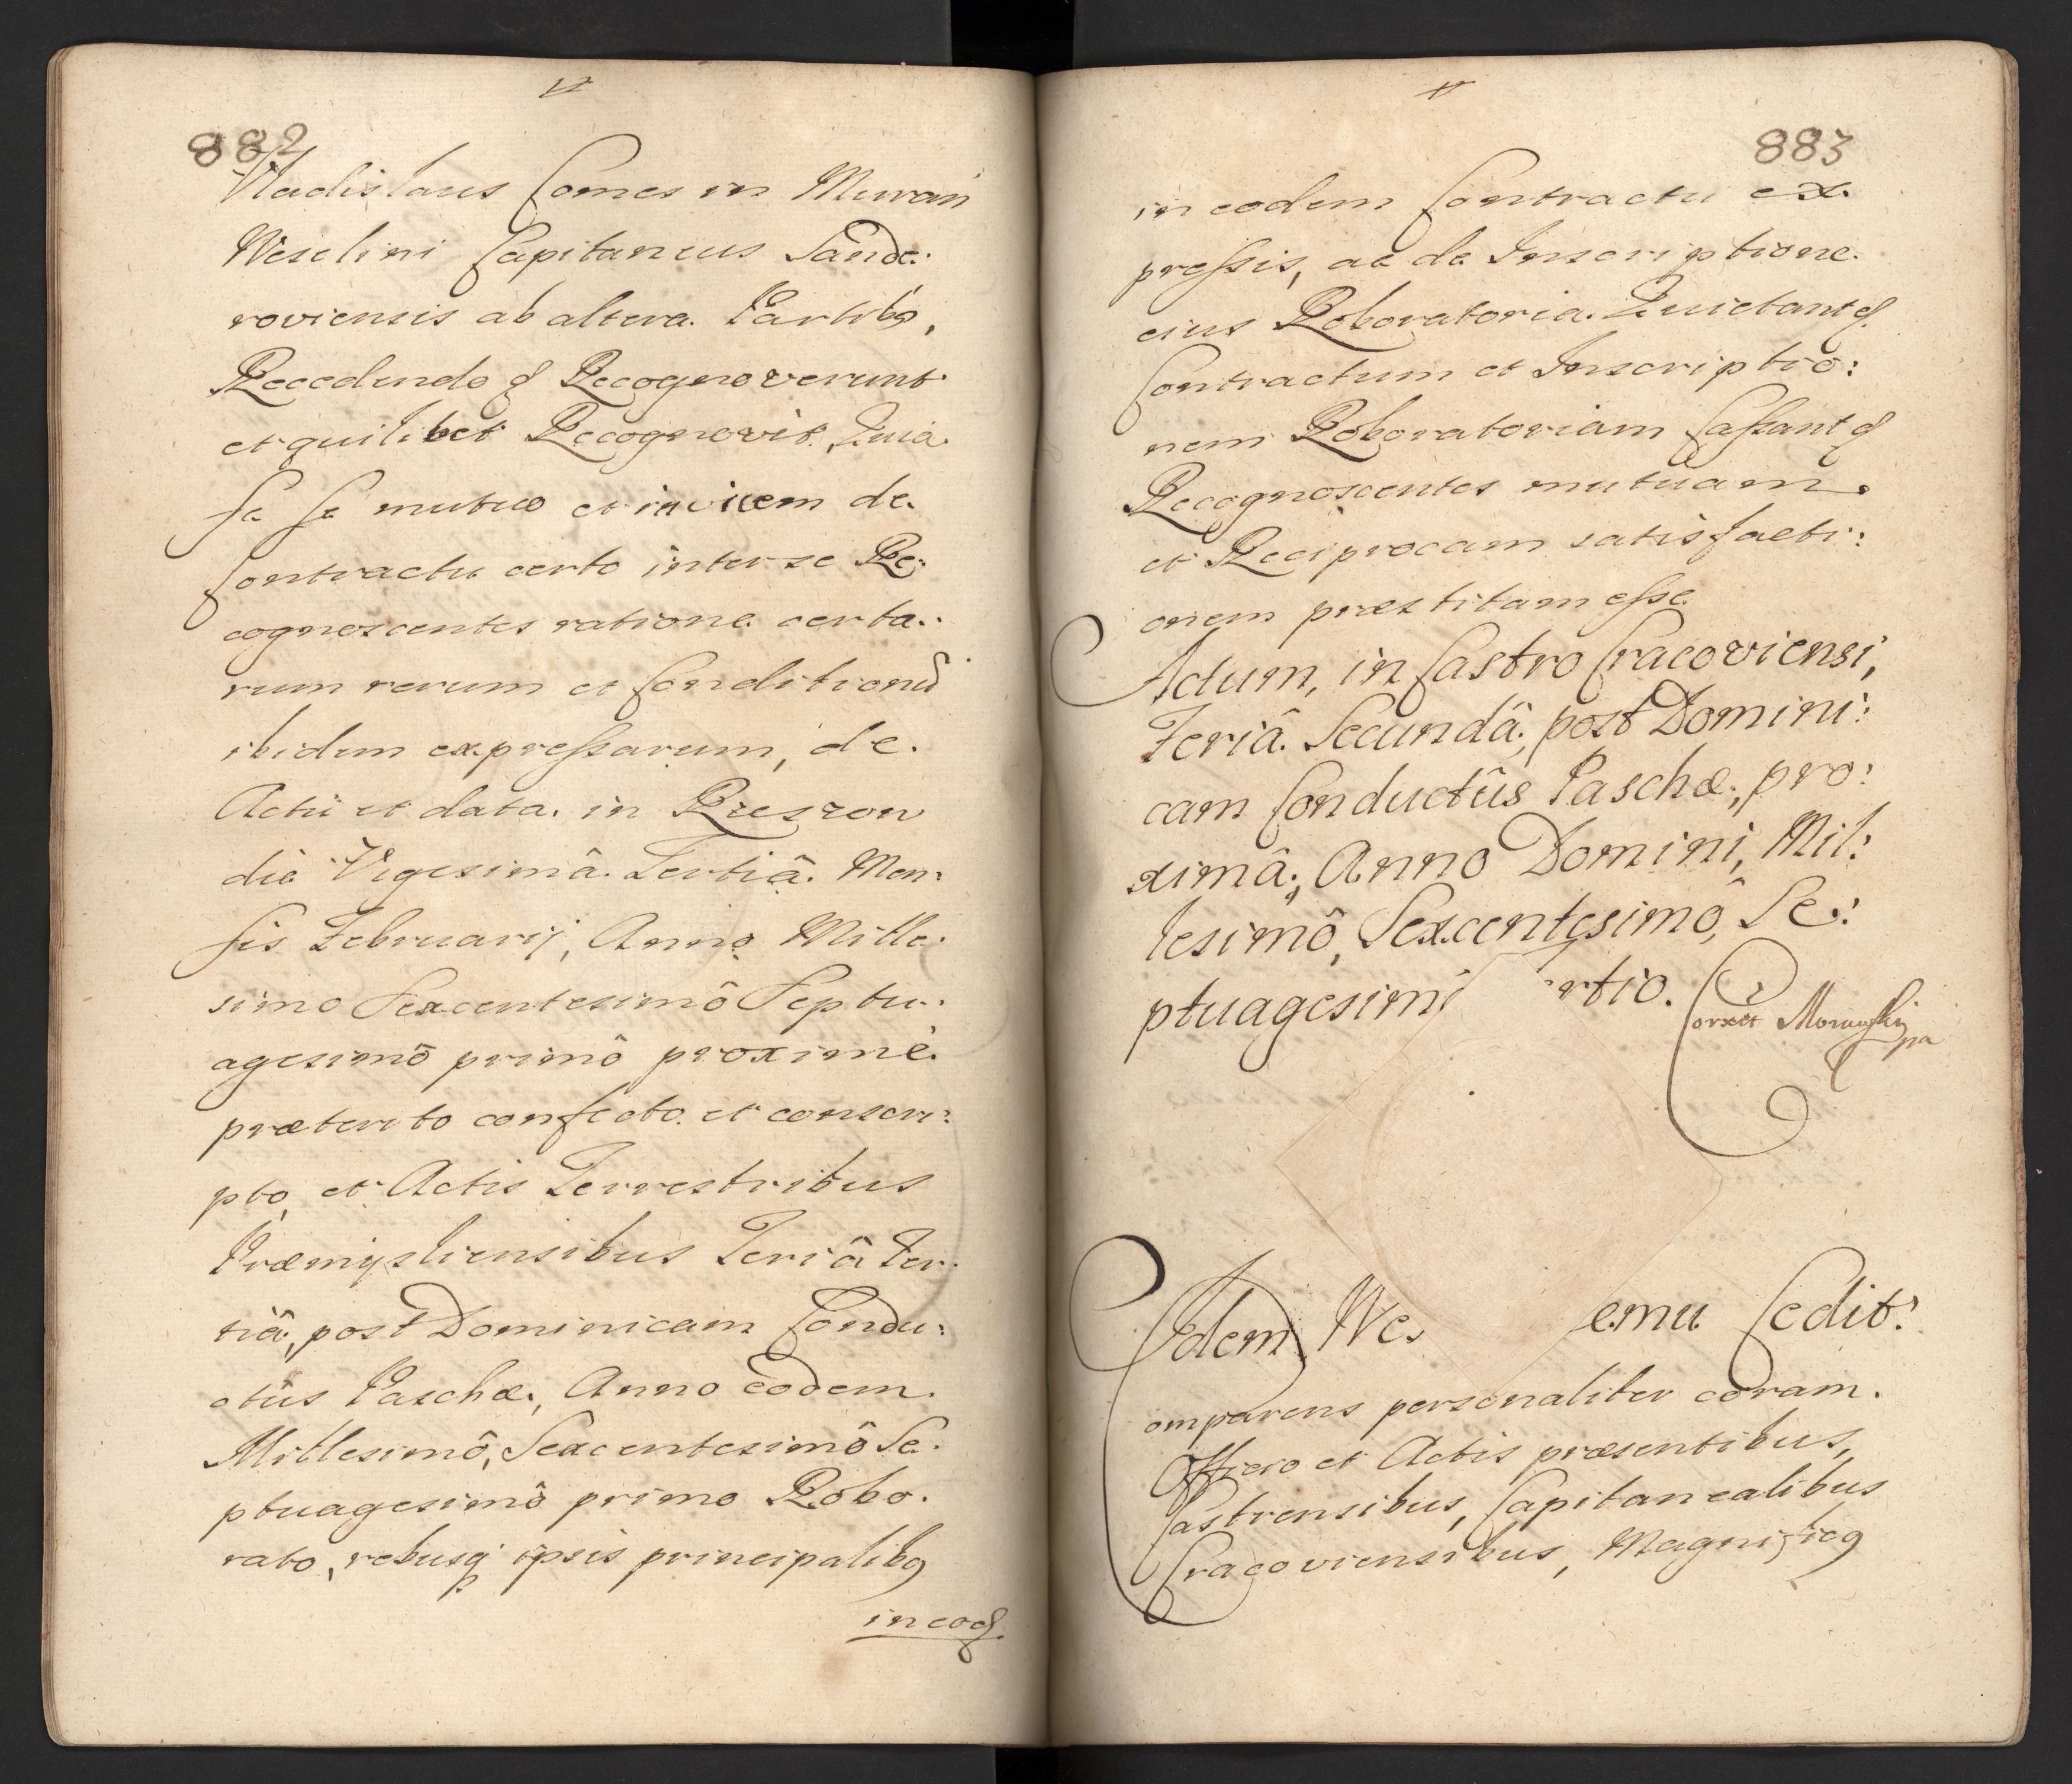 882
Vladislaus Comes in Muran
Weselini Capitaneus Sande:
roviensis ab altera. Partibꝫ,
Recedendo ꝗ Recognoverunt
et quilibet Recognovit, Quia
se se mutuo et invicem de
Contractu certo inter se Re:
cognoscentes ratione certa:
rum rerum et Conditionũ
ibidem expressarum, de
Actu et data in Rzeszow
die Vigesimâ Tertiâ Men:
sis Februarij, Anno Mille:
simo Sexcentesimô Septu:
agesimô primô proximè
præterito confecto et conscri:
pto, et Actis Terrestribus
Præmysliensibus Feriâ Ter:
tiâ, post Dominicam Condu:
ctûs Paschæ, Anno eodem
Millesimô, Sexcentesimô Se:
ptuagesimô primo Robo:
rato, rebusqꝫ ipsis principalibꝫ
in eod
883
in eodem Contractu ex:
pressis, ac de Inscriptione
eius Roboratoria. Quietant ꝗ
Contractum et Inscriptio:
nem Roboratoriam Cassant ꝗ
Recognoscentes mutuam
et Reciprocam satisfacti:
onem præstitam esse
Actum, in Castro Cracoviensi,
Feriâ Secundâ, post Domini:
cam Conductûs Paschæ, pro:
ximâ, Anno Domini, Mil:
lesimô, Sexcentesimô, Se:
ptuagesimô rtio.
Correxit Morawski
pa
Idem We emu Cedit:
omparens personaliter coram
Officio et Actis præsentibus,
Castrensibus, Capitanealibus
Cracoviensibus, Magnificꝫ